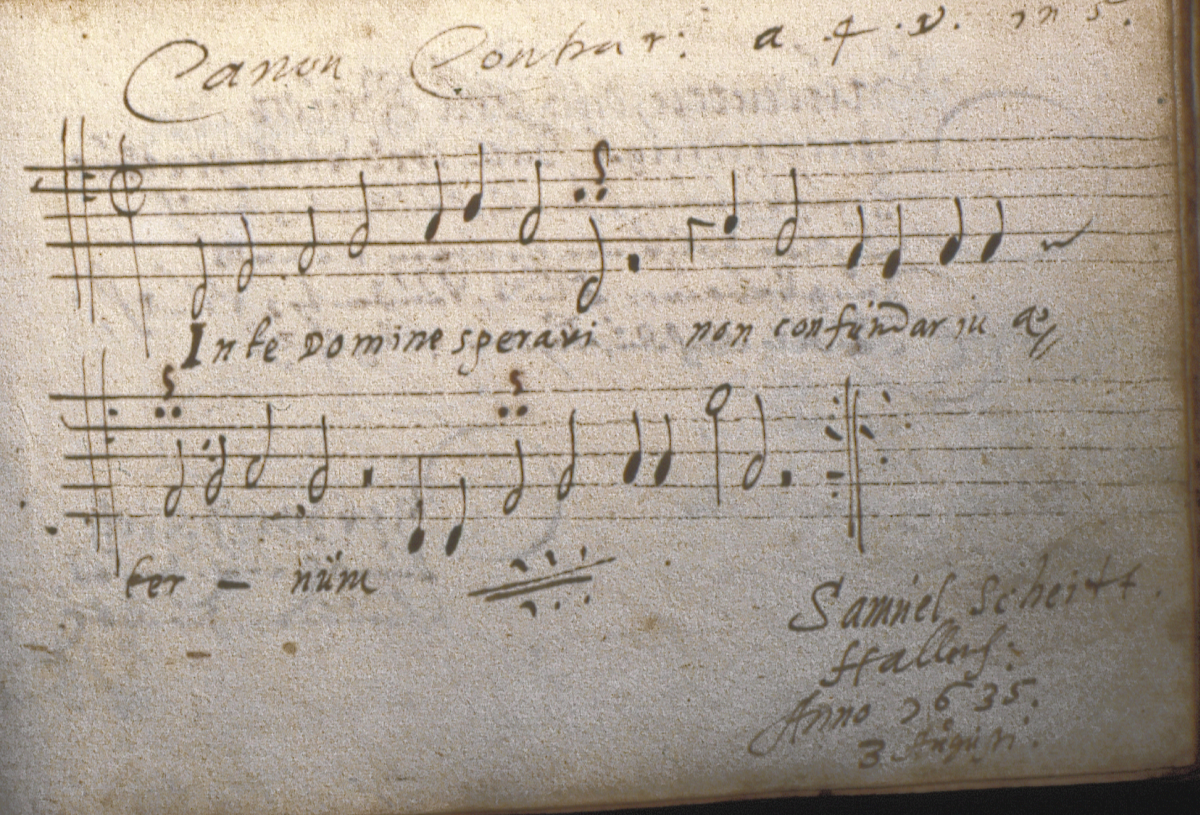 Canon Contrar: a 4. v. in 5.
In te Domine speravi non confundar in æ
ter - nüm
Samüel Scheitt.
Hallens:
Anno 1635.
3 Augusti.